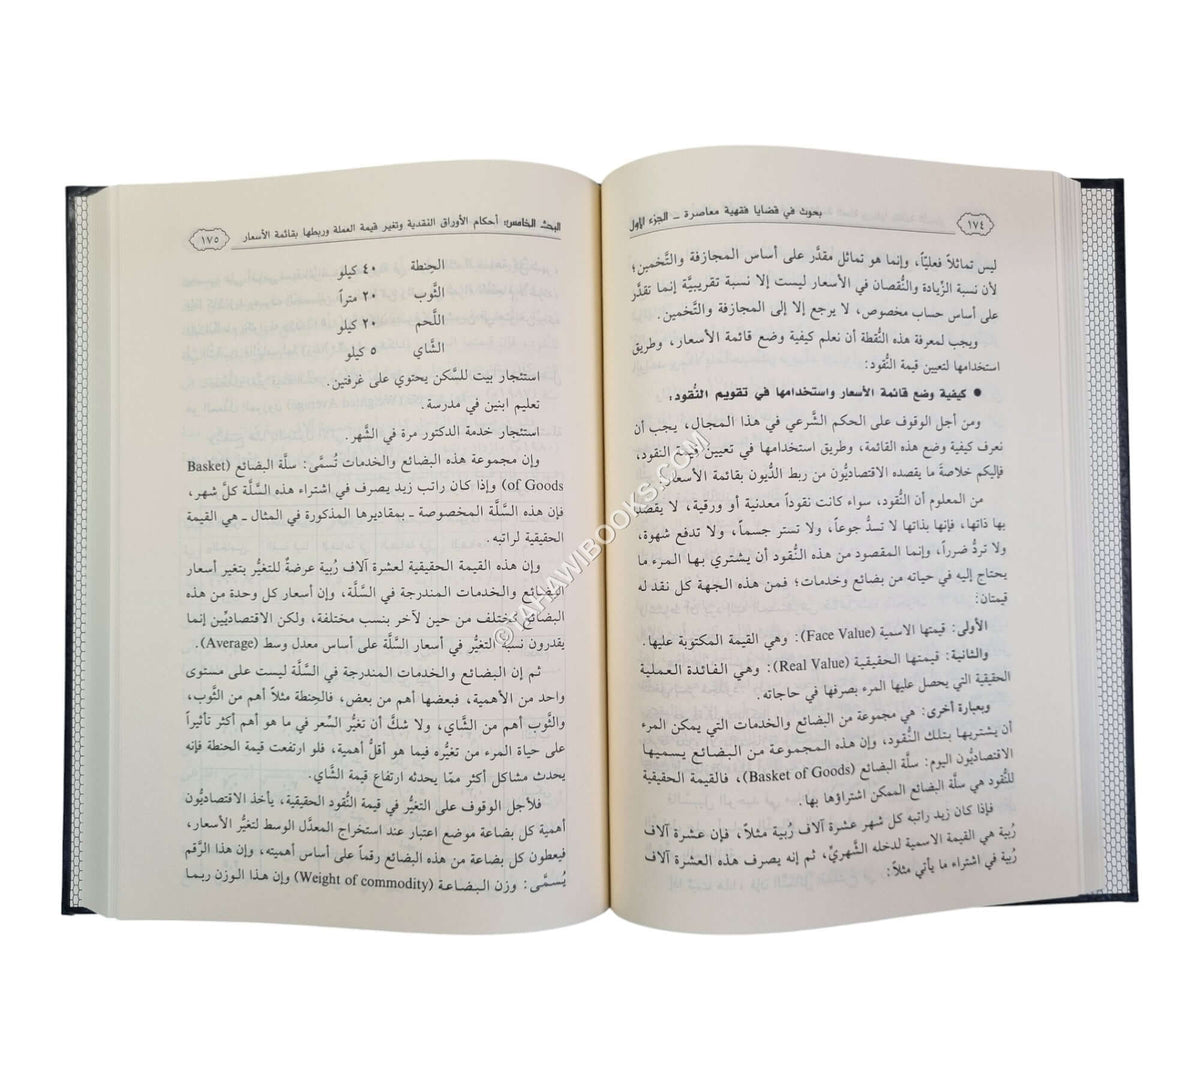 ١٧٤
بحوث في قضايا فقهية معاصرة ـ الجزء الأول
ليس تماثلاً فعليّاً، وإنما هو تماثل مقدَّر على أساس المجازفة والتَّخمين؛
لأن نسبة الزِّيادة والنُّقصان في الأسعار ليست إلا نسبة تقريبيَّة إنما تقدَّر
على أساس حساب مخصوص، لا يرجع إلا إلى المجازفة والتَّخمين.
ويجب لمعرفة هذه النُّقطة أن نعلم كيفية وضع قائمة الأسعار، وطريق
استخدامها لتعيين قيمة النُّقود:
● كيفية وضع قائمة الأسعار واستخدامها في تقويم النُّقود:
ومن أجل الوقوف على الحكم الشَّرعي في هذا المجال، يجب أن
نعرف كيفية وضع هذه القائمة، وطريق استخدامها في تعيين قيمة النقود،
فإليكم خلاصةَ ما يقصده الاقتصاديُّون من ربط الدُّيون بقائمة الأسعار.
من المعلوم أن النُّقود، سواء كانت نقوداً معدنية أو ورقية، لا يقصد
بها ذاتها، فإنها بذاتها لا تسدُّ جوعاً، ولا تستر جسماً، ولا تدفع شهوة،
ولا تردُّ ضرراً، وإنما المقصود من هذه النُّقود أن يشتري بها المرء ما
يحتاج إليه في حياته من بضائع وخدمات؛ فمن هذه الجهة كل نقد له
قيمتان:
الأولى: قيمتها الاسمية (Face Value): وهي القيمة المكتوبة عليها.
والثانية: قيمتها الحقيقية (Real Value): وهي الفائدة العملية
الحقيقية التي يحصل عليها المرء بصرفها في حاجاته.
وبعبارة أخرى: هي مجموعة من البضائع والخدمات التي يمكن المرء
أن يشتريها بتلك النُّقود، وإن هذه المجموعة من البضائع يسميها
الاقتصاديُّون اليوم: سلَّة البضائع (Basket of Goods)، فالقيمة الحقيقية
للنُّقود هي سلَّة البضائع الممكن اشتراؤها بها.
فإذا كان زيد راتبه كل شهر عشرة آلاف رُبية مثلاً، فإن عشرة آلاف
رُبية هي القيمة الاسمية لدخله الشَّهريِّ، ثم إنه يصرف هذه العشرة آلاف
رُبية في اشتراء ما يأتي مثلاً:
البحث الخامس: أحكام الأوراق النقدية وتغير قيمة العملة وربطها بقائمة الأسعار
١٧٥
الحِنطة ٤٠ كيلو
الثَّوب ٢٠ متراً
اللَّحم ٢٠ كيلو
الشَّاي ٥ كيلو
استئجار بيت للسَّكن يحتوي على غرفتين.
تعليم ابنين في مدرسة.
استئجار خدمة الدكتور مرة في الشَّهر.
وإن مجموعة هذه البضائع والخدمات تُسمَّى: سلَّة البضائع (Basket
of Goods) وإذا كان راتب زيد يصرف في اشتراء هذه السَّلَّة كلَّ شهر،
فإن هذه السَّلَّة المخصوصة ـ بمقاديرها المذكورة في المثال ـ هي القيمة
الحقيقية لراتبه.
وإن هذه القيمة الحقيقية لعشرة آلاف رُبية عرضةٌ للتغيُّر بتغير أسعار
البضائع والخدمات المندرجة في السَّلَّة، وإن أسعار كل وحدة من هذه
البضائع تختلف من حين لآخر بنسب مختلفة، ولكن الاقتصاديِّين إنما
يقدرون نسبة التغيُّر في أسعار السَّلَّة على أساس معدل وسط (Average).
ثم إن البضائع والخدمات المندرجة في السَّلَّة ليست على مستوى
واحد من الأهمية، فبعضها أهم من بعض، فالحِنطة مثلاً أهم من الثَّوب،
والثَّوب أهم من الشَّاي، ولا شكَّ أن تغيُّر السِّعر في ما هو أهم أكثر تأثيراً
على حياة المرء من تغيُّره فيما هو أقلُّ أهمية، فلو ارتفعت قيمة الحنطة فإنه
يحدث مشاكل أكثر ممَّا يحدثه ارتفاع قيمة الشَّاي.
فلأجل الوقوف على التغيُّر في قيمة النُّقود الحقيقية، يأخذ الاقتصاديُّون
أهمية كل بضاعة موضع اعتبار عند استخراج المعدَّل الوسط لتغيُّر الأسعار،
فيعطون كل بضاعة من هذه البضائع رقماً على أساس أهميته، وإن هذا الرَّقم
يُسمَّى: وزن البضاعة (Weight of commodity) وإن هذا الوزن ربما
©TAHAWIBOOKS.COM